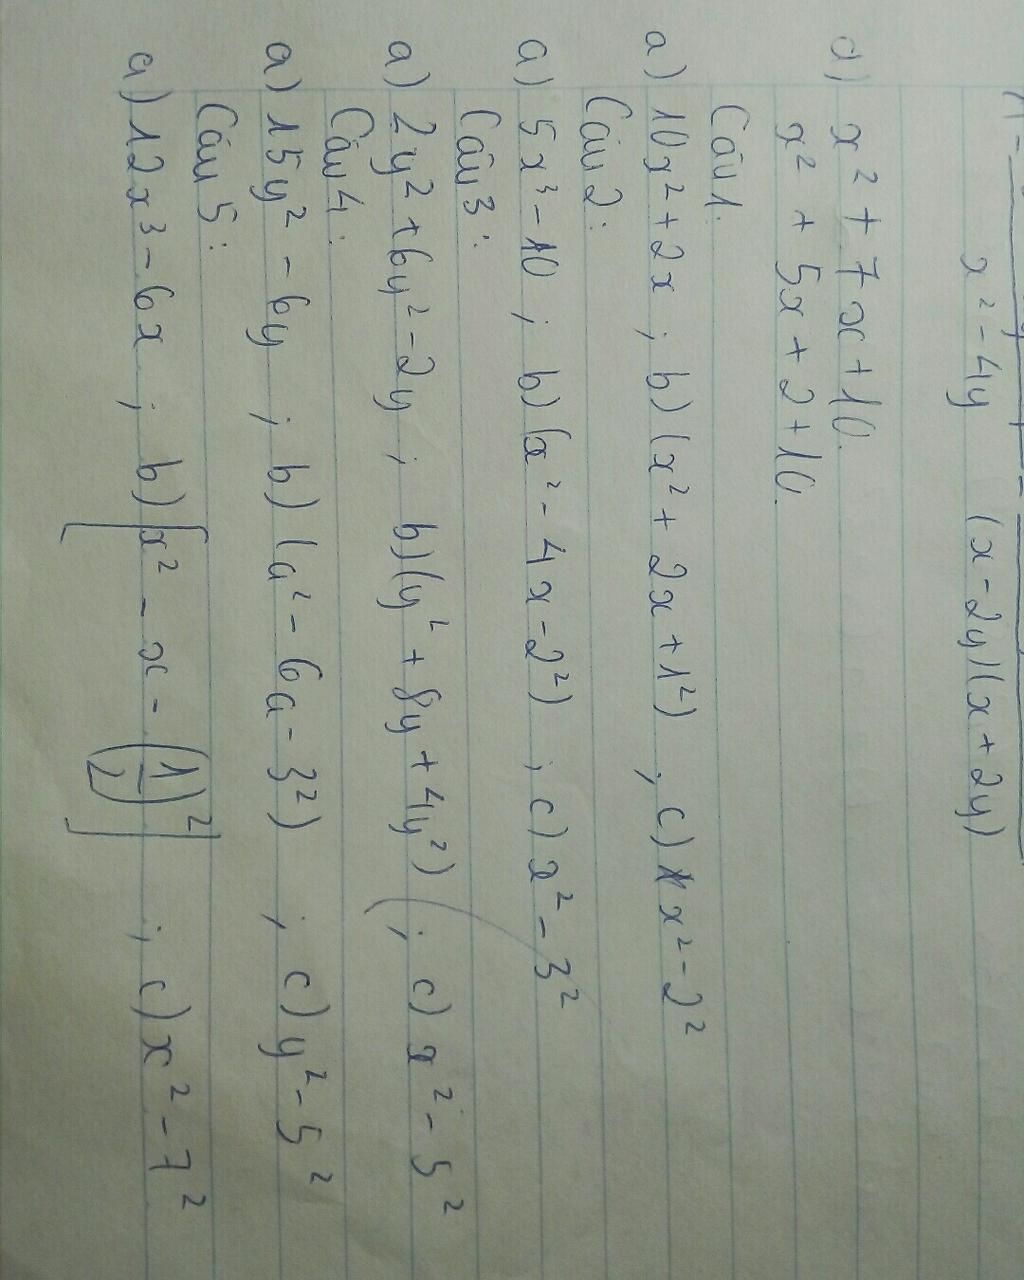 x² - 4y (x - 2y)(x + 2y)
d) x² + 7x + 10.
x² + 5x + 2 + 10.
Câu 1.
a) 10x² + 2x ; b) (x² + 2x + 1²) , c) x² - 2²
Câu 2:
a) 5x³ - 10 ; b) (x² - 4x - 2²) ; c) x² - 3²
Câu 3:
a) 2y² + 6y² - 2y ; b) (y² + 8y + 4y²) ; c) x² - 5²
Câu 4:
a) 15y² - 6y ; b) (a² - 6a - 3²) ; c) y² - 5²
Câu 5:
a) 12x³ - 6x ; b) [x² - x - (1/2)²] ; c) x² - 7²